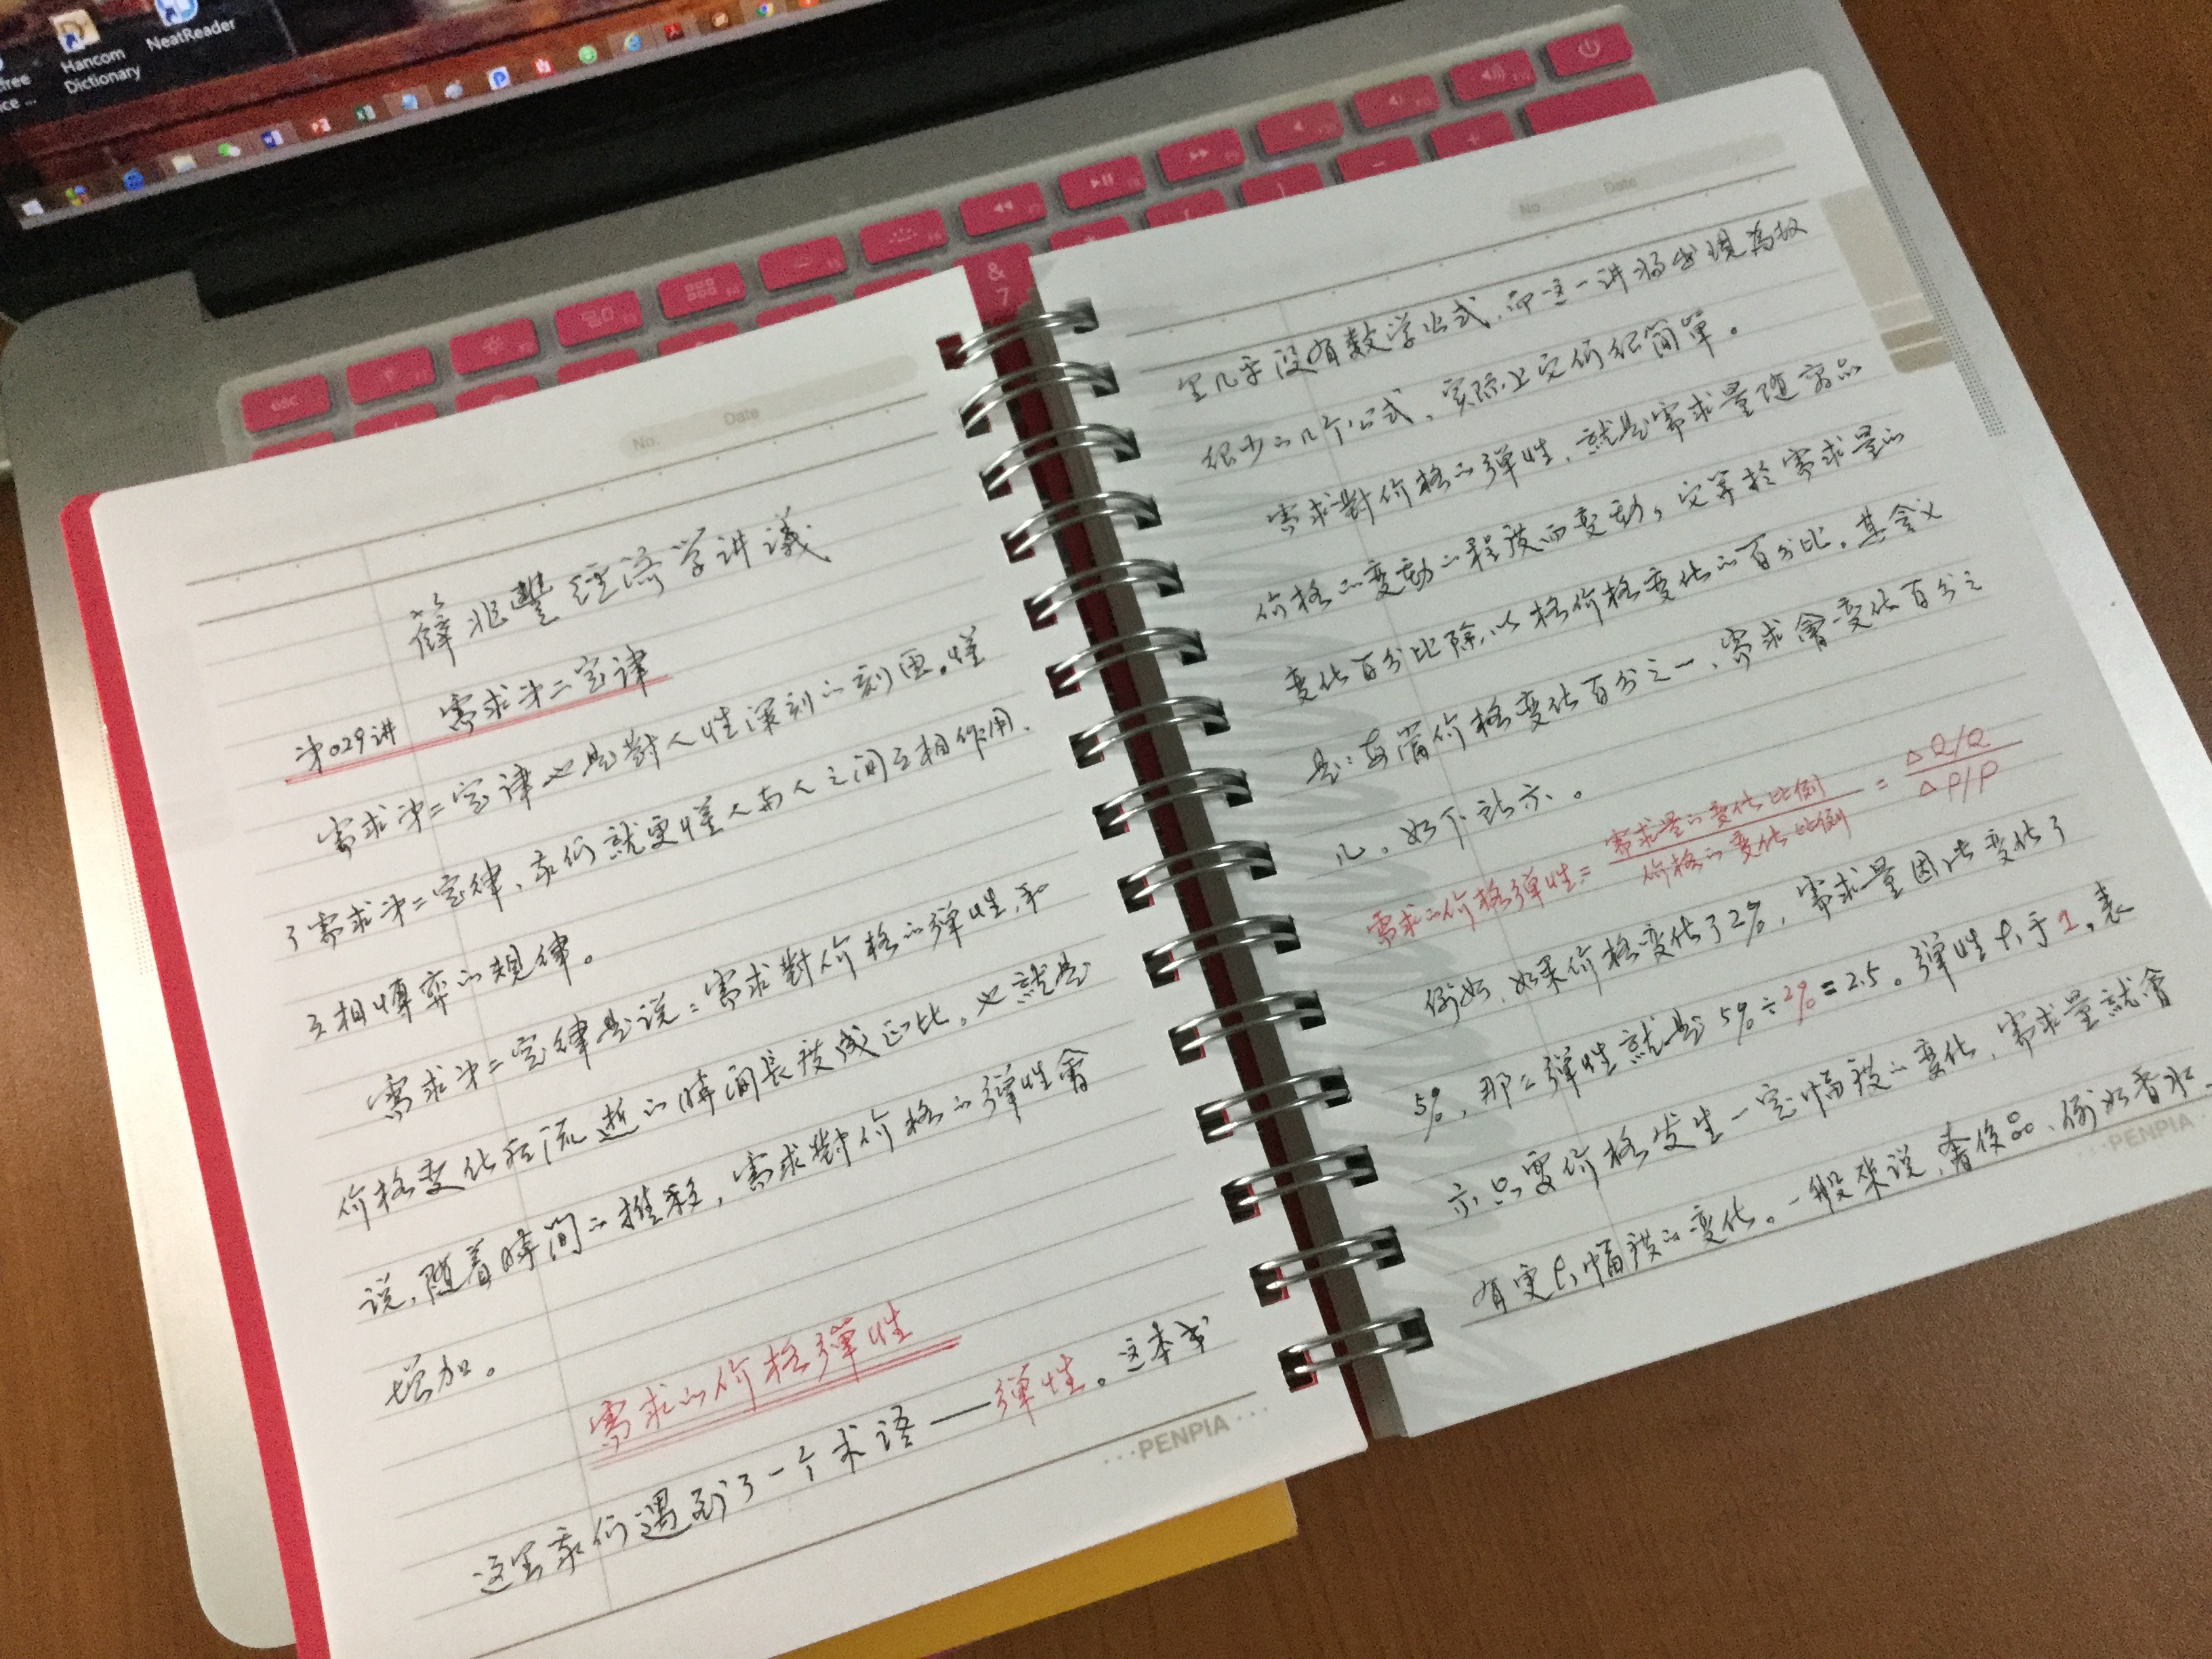 Hancom
Dictionary
NeatReader
free
esc
&
7
No.
Date
薛兆豐经济学讲議
第029讲 需求第二定律
需求第二定律也是對人性深刻的刻画。懂
了需求第二定律、我们就更懂人与人之间互相作用、
互相博弈的規律。
需求第二定律是说：需求對价格的弹性,和
价格变化后流逝的時间長度成正比。也就是
说,随着時间的推移，需求對价格的弹性會
增加。
需求的价格弹性
这里我们遇到了一个术语——弹性。这本书
PENPIA
No.
Date
里几乎没有数学公式,而这一讲将出現為数
很少的几个公式。实际上它们很简单。
需求對价格的弹性,就是需求量随商品
价格的变動的程度而变動，它等於需求量的
变化百分比除以格价格变化的百分比。其含义
是：每當价格变化百分之一、需求會变化百分之
几。如下所示。
需求的价格弹性= 需求量的变化比例/价格的变化比例 = △Q/Q / △P/P
例如、如果价格变化了2%，需求量因此变化了
5%，那么弹性就是5%÷2%=2.5。弹性大于1,表
示只要价格发生一定幅度的变化、需求量就會
有更大幅度的变化。一般来说,奢侈品、例如香水、
PENPIA